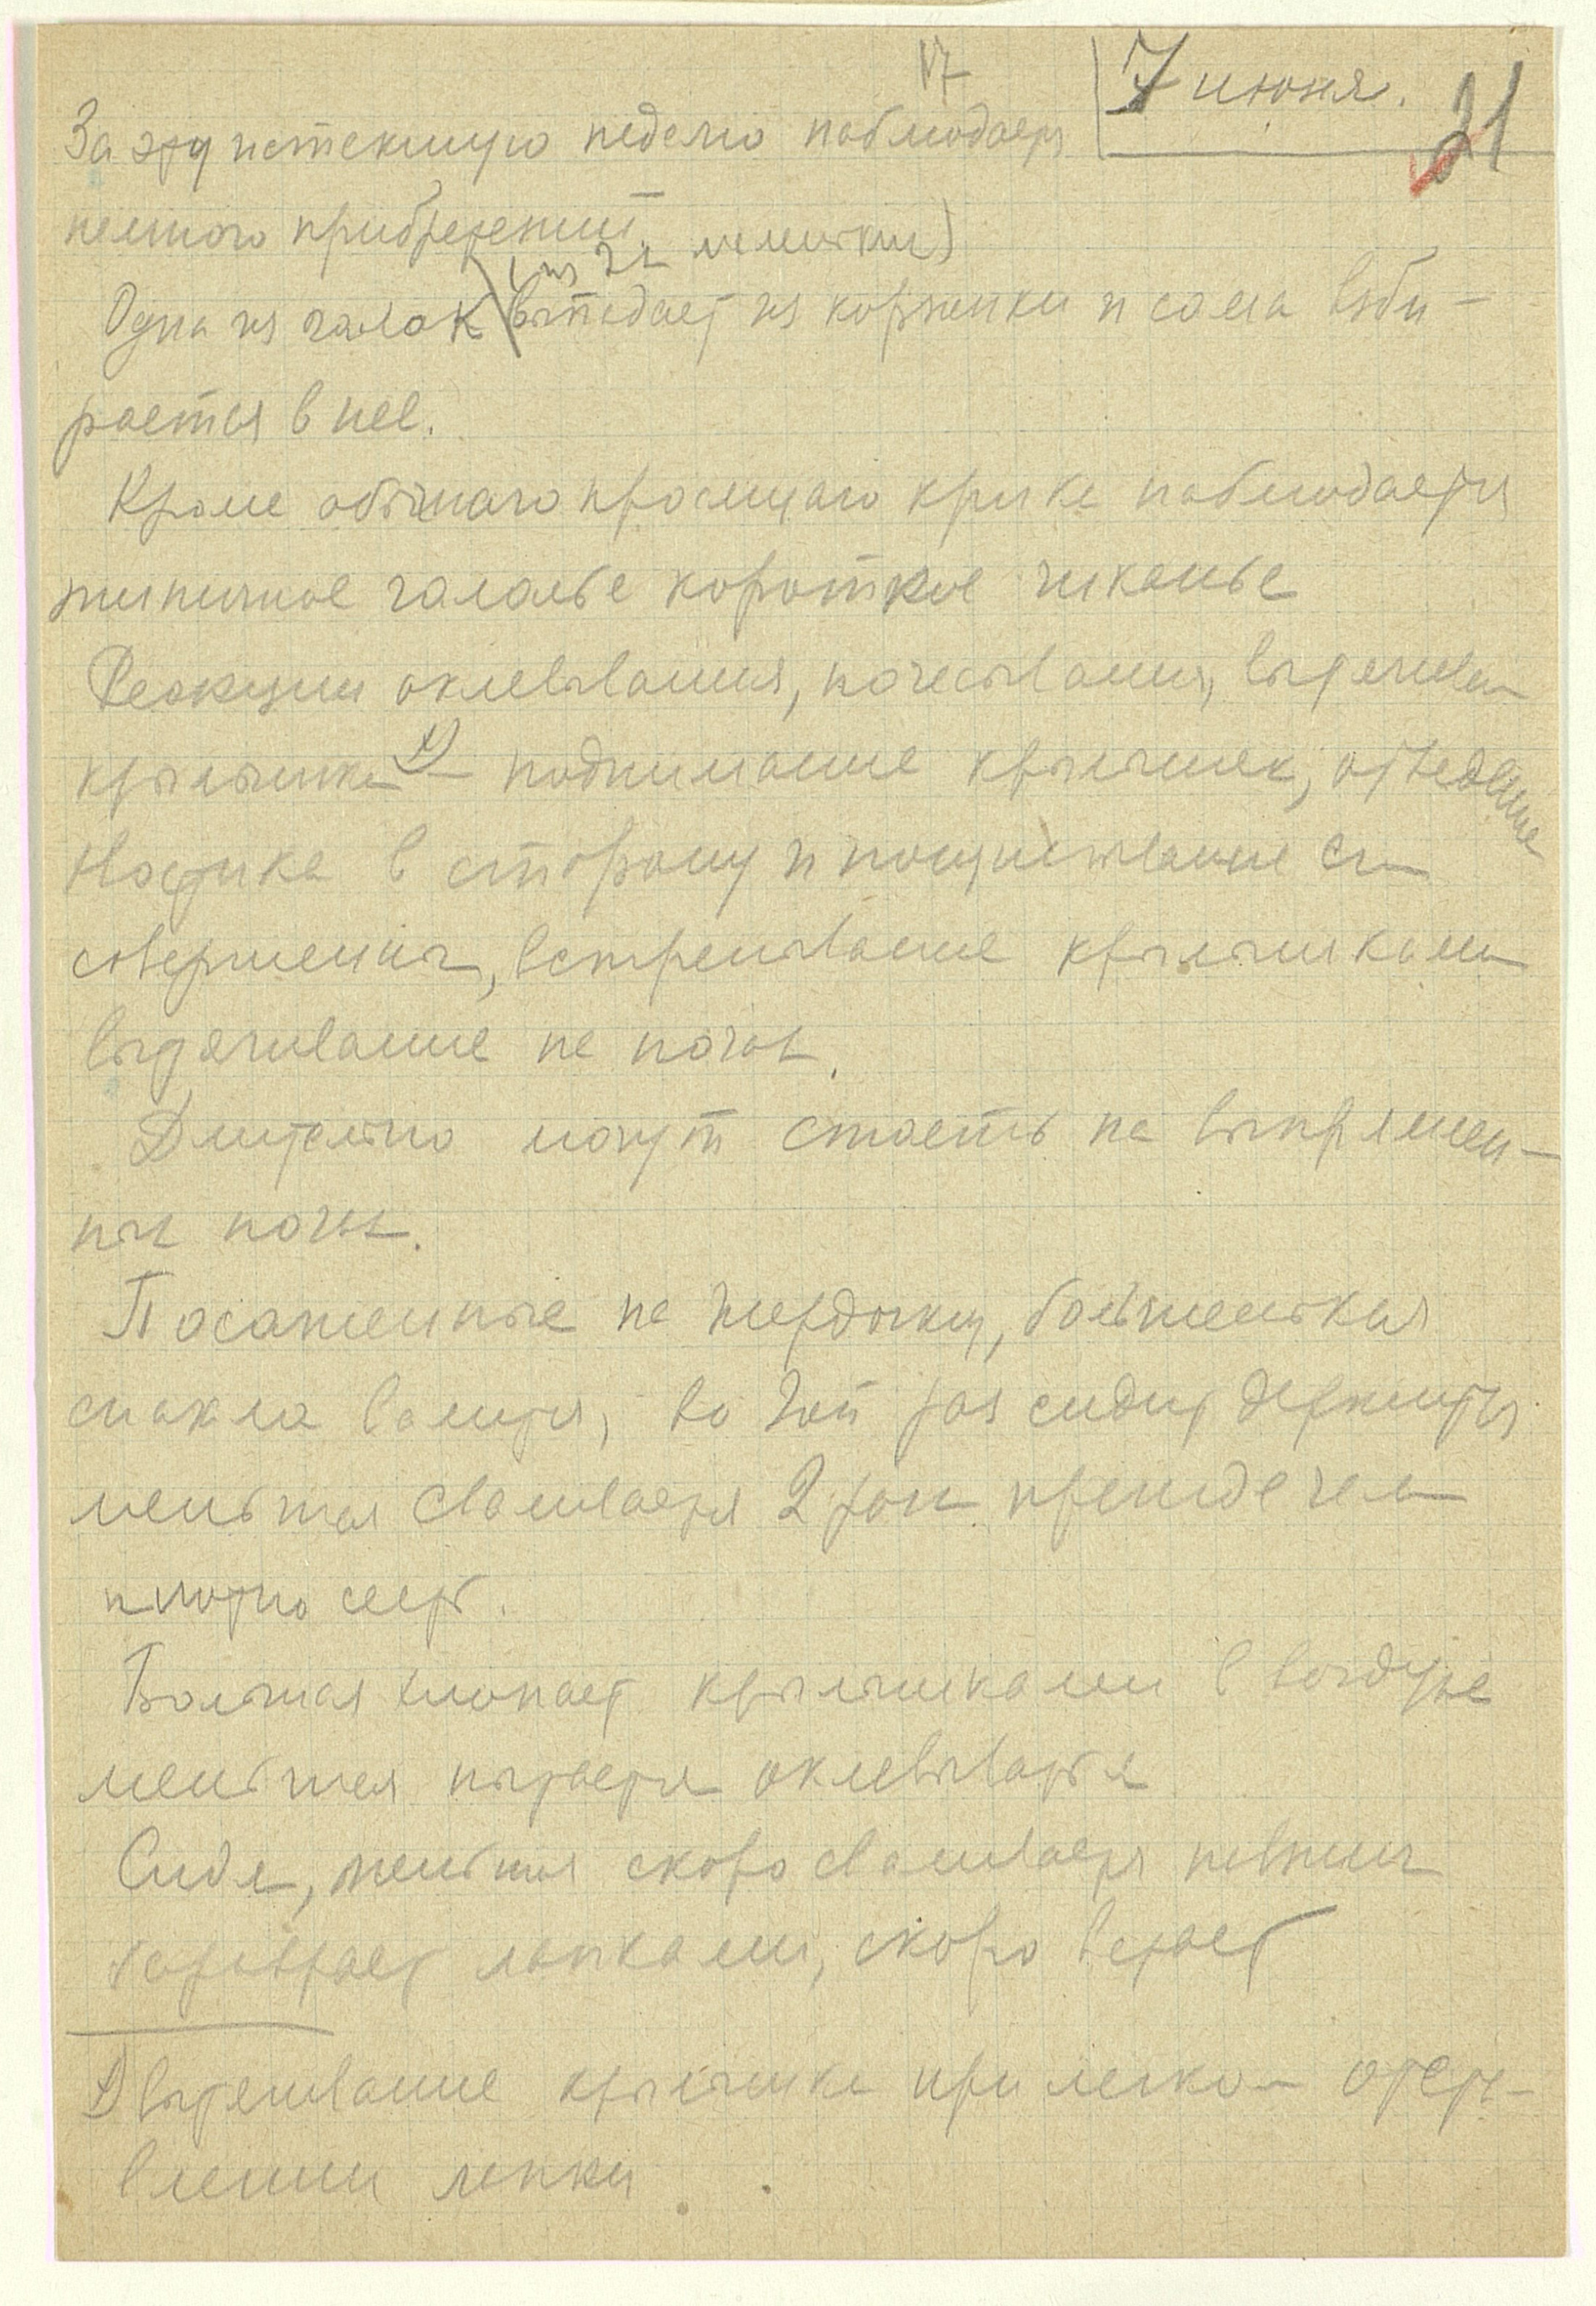 17
7 июня.
21
За эту истекшую неделю наблюдается
немного приобретений.
(из 2х меньшая)
Одна из галок выпадает из корзинки и сама взби-
рается в нее.
Кроме обычного просящаго крика наблюдается
типичное галочье короткое чиканье
Реакции оклевывания, почесывания, вытягиван
крылышка 1) – поднимание крылышек, отведение
Хвостика в сторону и пощипывание
совершенны, встрепывание крылышками
вытягивание на ногах.
Длительно могут стоять на выпрямлен-
ных ногах.
Посаженные на жердочку, большенькая
сначала валится, во 2ой раз сидит держится
меньшая сваливается 2 раза прежде чем
плотно сесть.
Большая хлопает крылышками в воздухе
меньшая пытается оклевываться
Сидя, меньшая скоро сваливается навзничь
лапками, скоро встает
1) Вытягивание крылышка при легком отста-
влении лапки